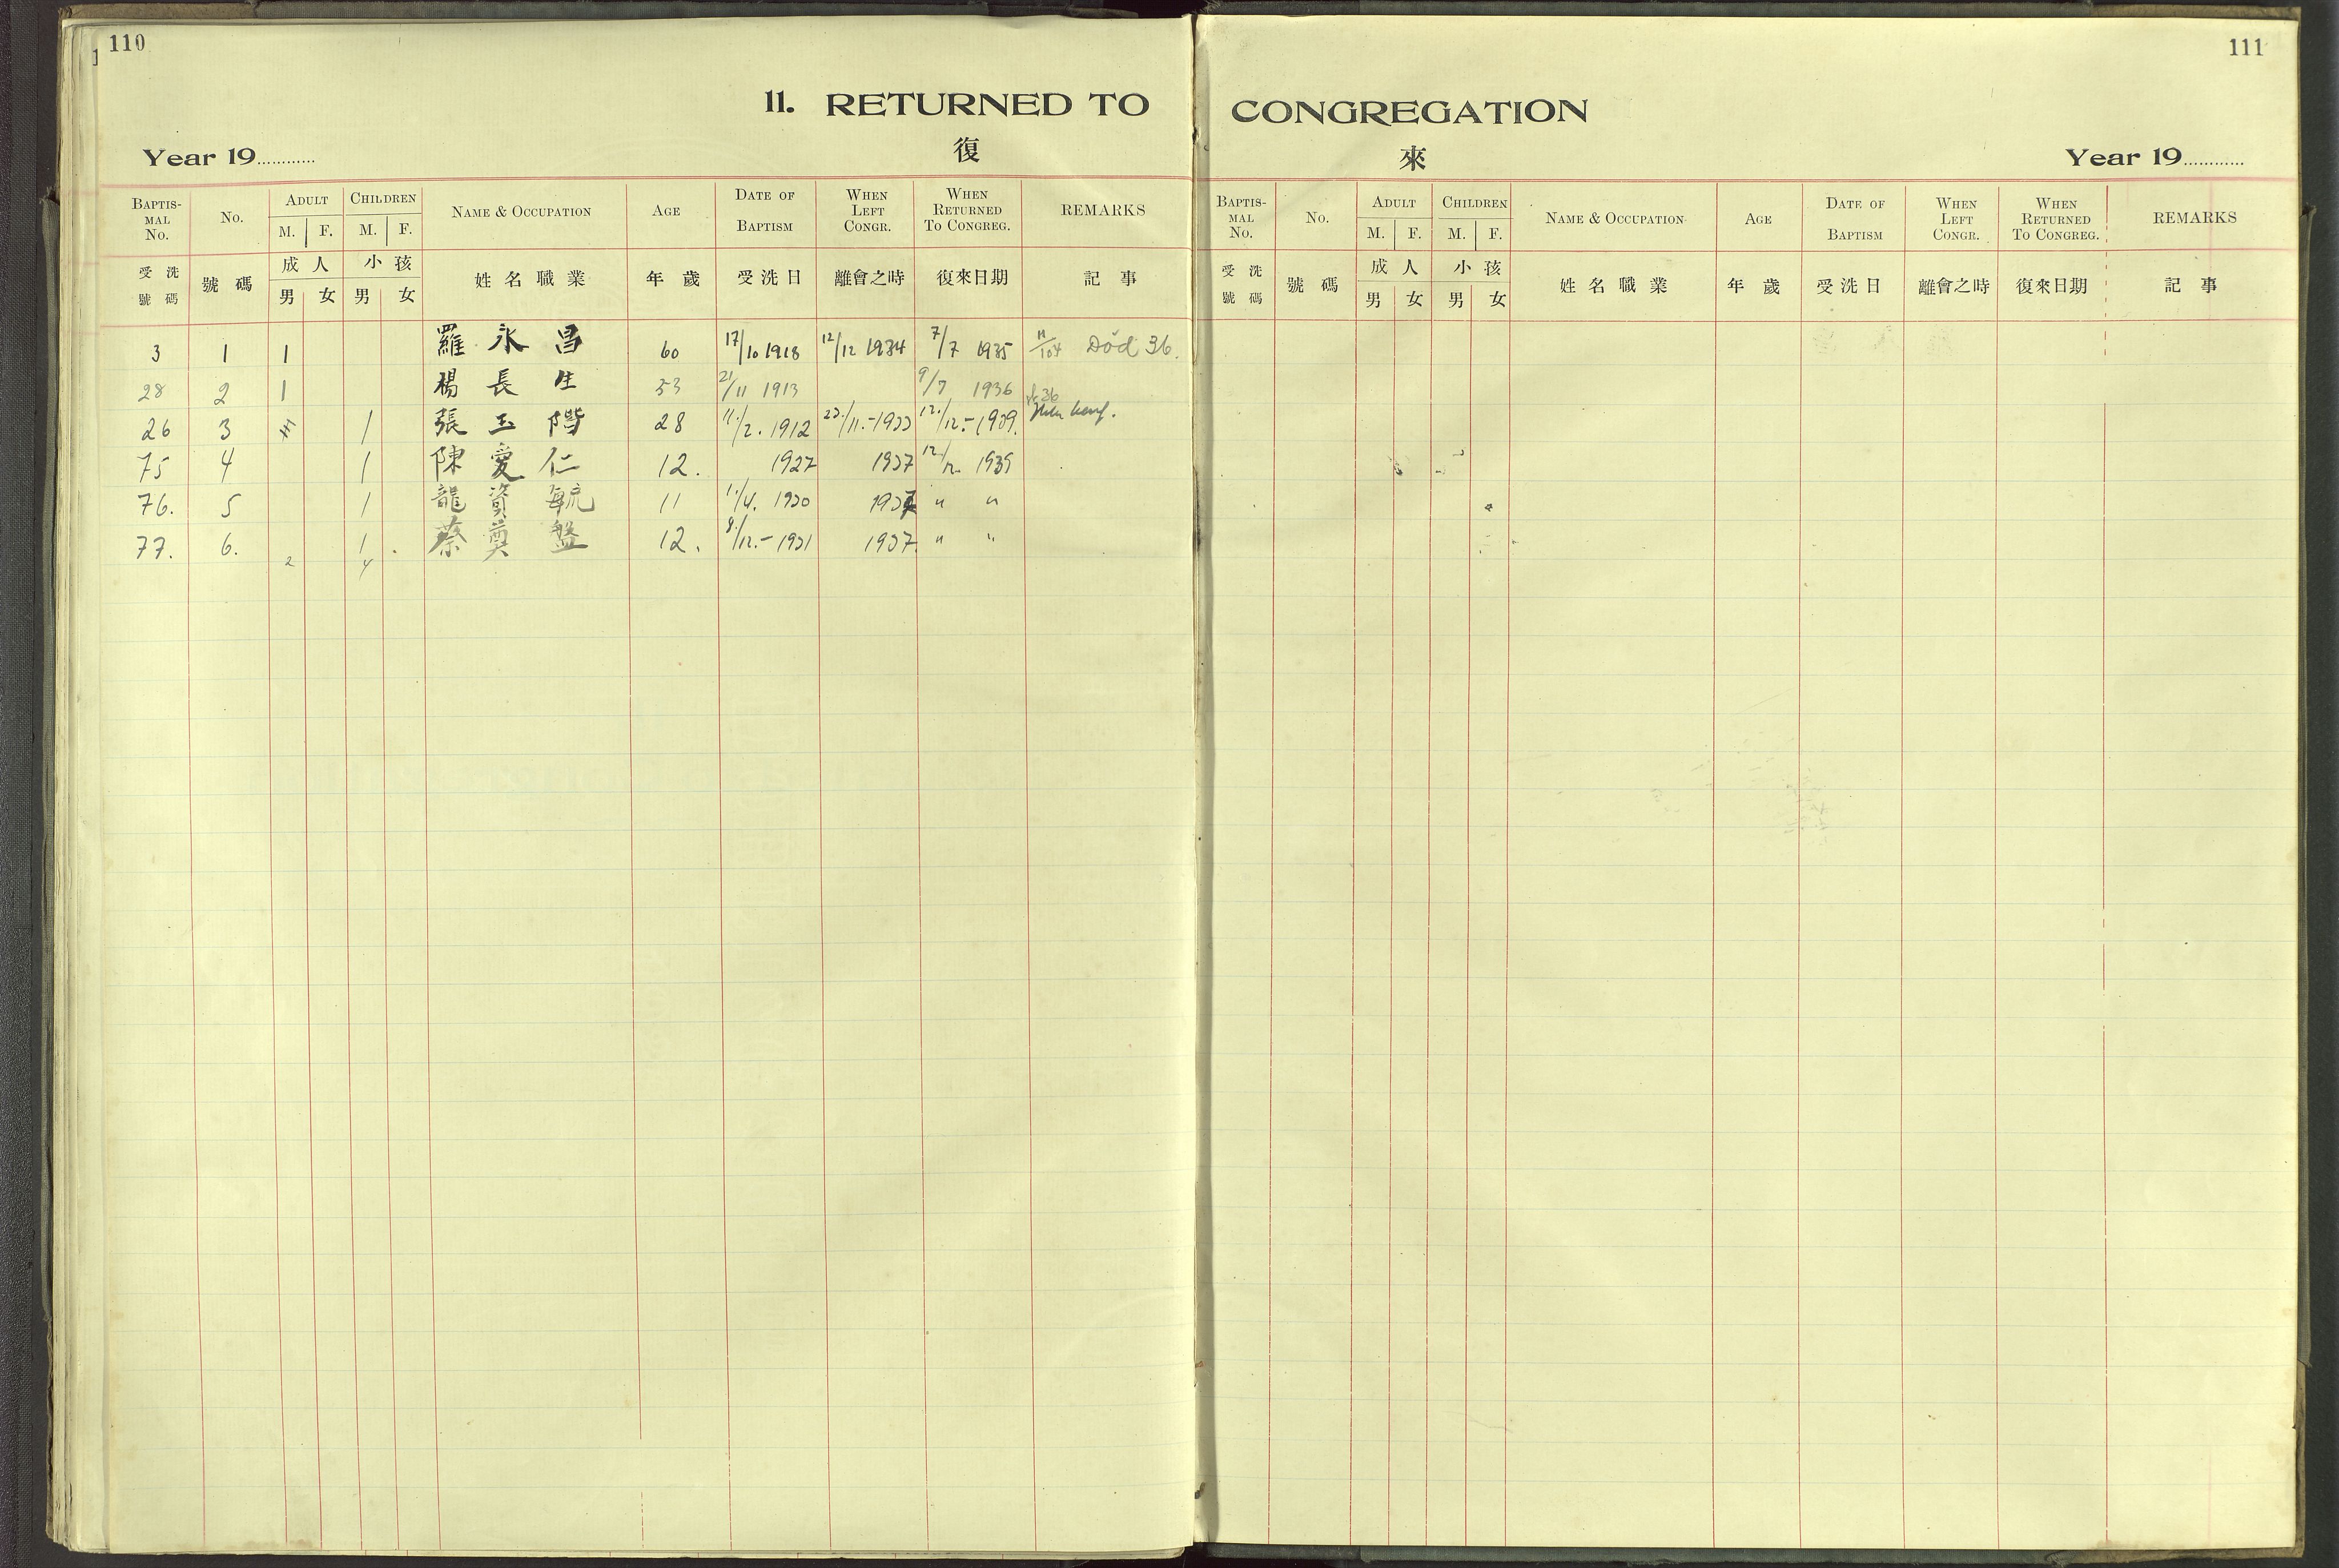 110
111
11. RETURNED TO CONGREGATION
復 來
Year 19............ Year 19............
BAPTISMAL No. No. ADULT M. F. CHILDREN M. F. NAME & OCCUPATION AGE DATE OF BAPTISM WHEN LEFT CONGR. WHEN RETURNED TO CONGREG. REMARKS
受洗號碼 號碼 成人 男 女 小孩 男 女 姓名職業 年歲 受洗日 離會之時 復來日期 記事
3 1 1 羅永昌 60 17/10 1918 12/12 1934 7/7 1935 Död 36.
28 2 1 楊長生 53 21/11 1913 9/7 1936
26 3 1 張玉階 28 11./2. 1912 23./11.-1933 12./12.-1939.
75 4 1 陳愛仁 12. 1927 1937 12./12. 1939
76. 5 1 龍資毓 11 1./4. 1930 1937 " "
77. 6. 1. 蔡奠盤 12. 9./12.-1931 1937. " "
2 4
BAPTISMAL No. No. ADULT M. F. CHILDREN M. F. NAME & OCCUPATION AGE DATE OF BAPTISM WHEN LEFT CONGR. WHEN RETURNED TO CONGREG. REMARKS
受洗號碼 號碼 成人 男 女 小孩 男 女 姓名職業 年歲 受洗日 離會之時 復來日期 記事